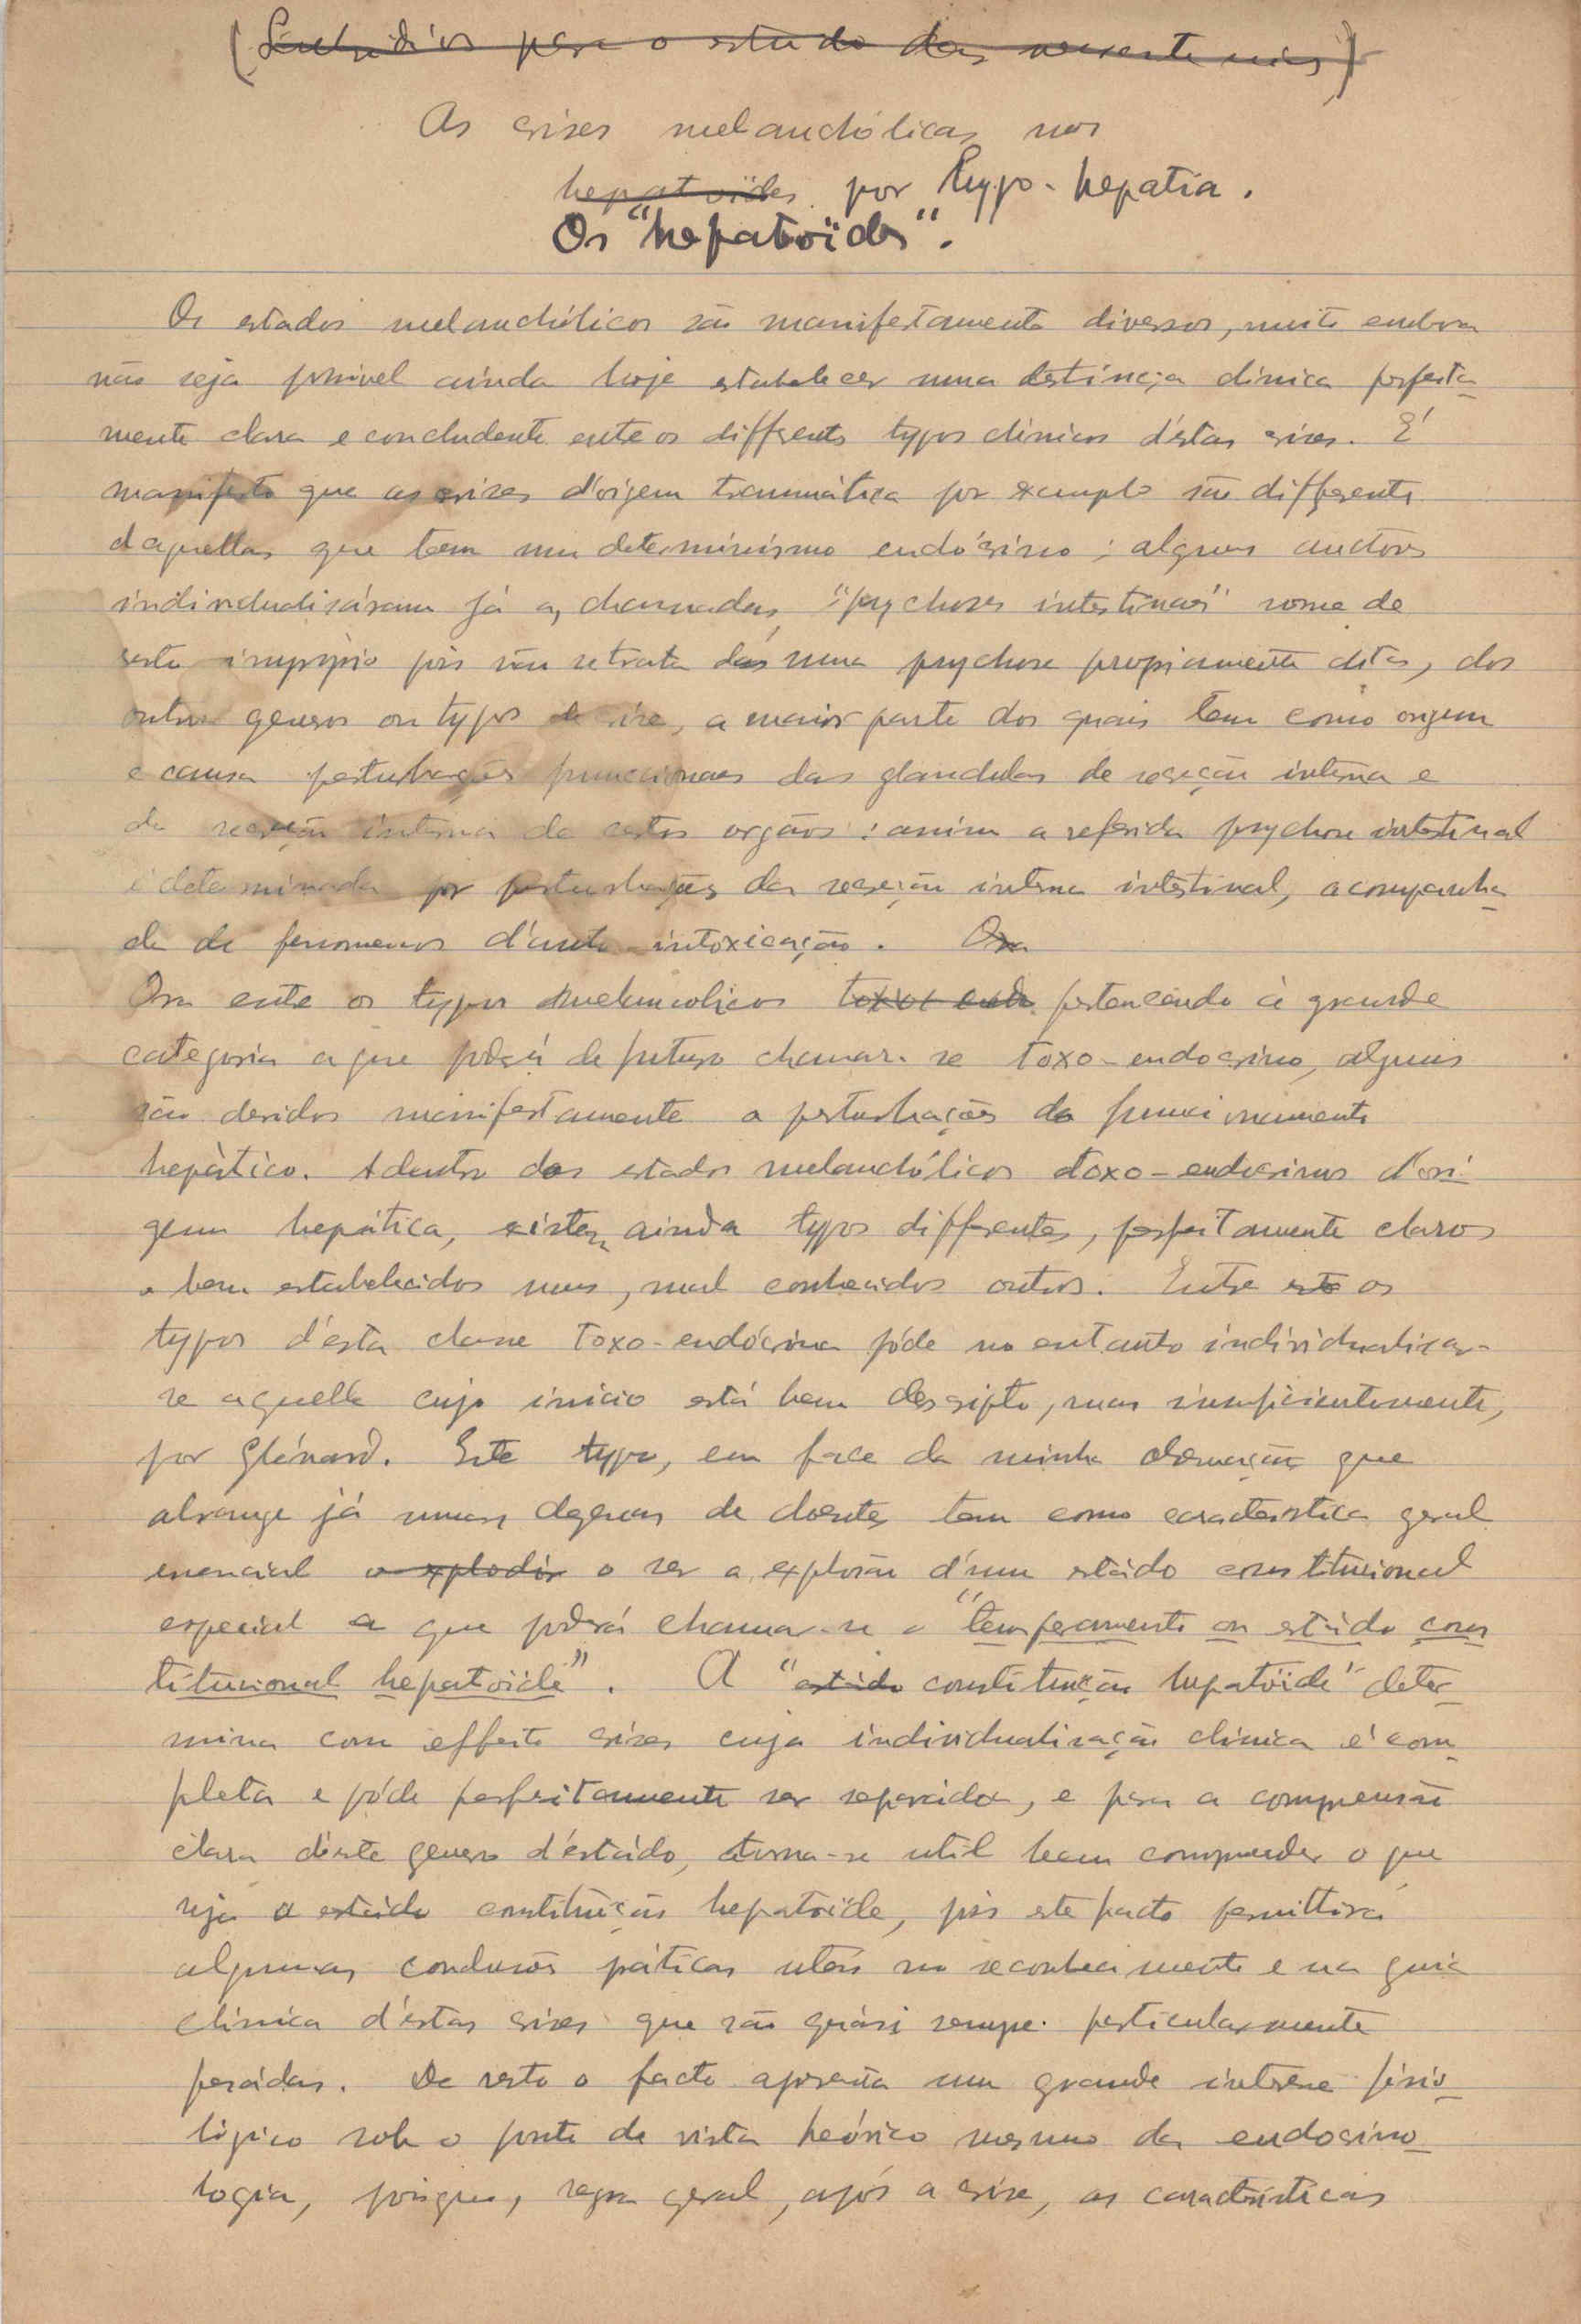 (Subsidios para o estudo das neurastenias)
As crises melanchólicas nos
hepatoïdes por hypo-hepatia.
Os "hepatoïdes".
Os estados melanchólicos são manifestamente diversos, muito embora
não seja possivel ainda hoje estabelecer uma destincção clinica perfeita-
mente clara e concludente entre os differentes typos clinicos d'éstas crises. É
manifesto que as crises d'origem traumática por exemplo são differentes
d'aquellas que teem um determinismo endócrino; alguns auctores
individualisáram já as chamadas "psychoses intestinaes" nome de
resto improprio pois não se trata duma psychose propriamente dita, dos
outros generos ou typos de crise, a maior parte dos quais tem como origem
e causa perturbações funccionaes das glandulas de secreção interna e
da secreção interna de certos orgãos: assim a referida psychose intestinal
é determinada por perturbações da secreção interna intestinal, acompanha-
da de fenomenos d'auto-intoxicação. Ora
Ora entre os typos melancolicos toxo-end. pertencendo á grande
categoria a que poderá de futuro chamar-se toxo-endocrino, alguns
são devidos manifestamente a perturbações do funccionamento
hepático. Adentro dos estados melanchólicos toxo-endocrinos d'ori-
gem hepática, existem ainda typos differentes, perfeitamente claros
e bem estabelecidos uns, mal conhecidos outros. Entre este os
typos d'esta classe toxo-endócrina póde no entanto individualisar-
se aquelle cujo inicio está bem descripto, mas insuficientemente,
por Glénard. Este typo, em face da minha observação que
abrange já umas dezenas de doentes tem como caracteristica geral
essencial o explodir o ser a explosão d'um estádo constitucional
especial a que poderá chamar-se o "temperamento ou estádo cons
titucional hepatoïde". A "estádo constituição hepatoïde" deter-
mina com effeito crises cuja individualisação clinica é com-
pleta e póde perfeitamente ser separada, e para a compreensão
clara d'este genero d'estádo, torna-se util bem compreender o que
seja a estádo constituição hepatoïde, pois este facto permittirá
algumas conclusões práticas uteis no reconhecimento e na guia
clinica d'éstas crises que são quási sempre particularmente
pesadas. De resto o facto apresenta um grande interesse fisio-
lógico sob o ponto de vista teórico mesmo da endocrino-
logia, porque, regra geral, após a crise, as características